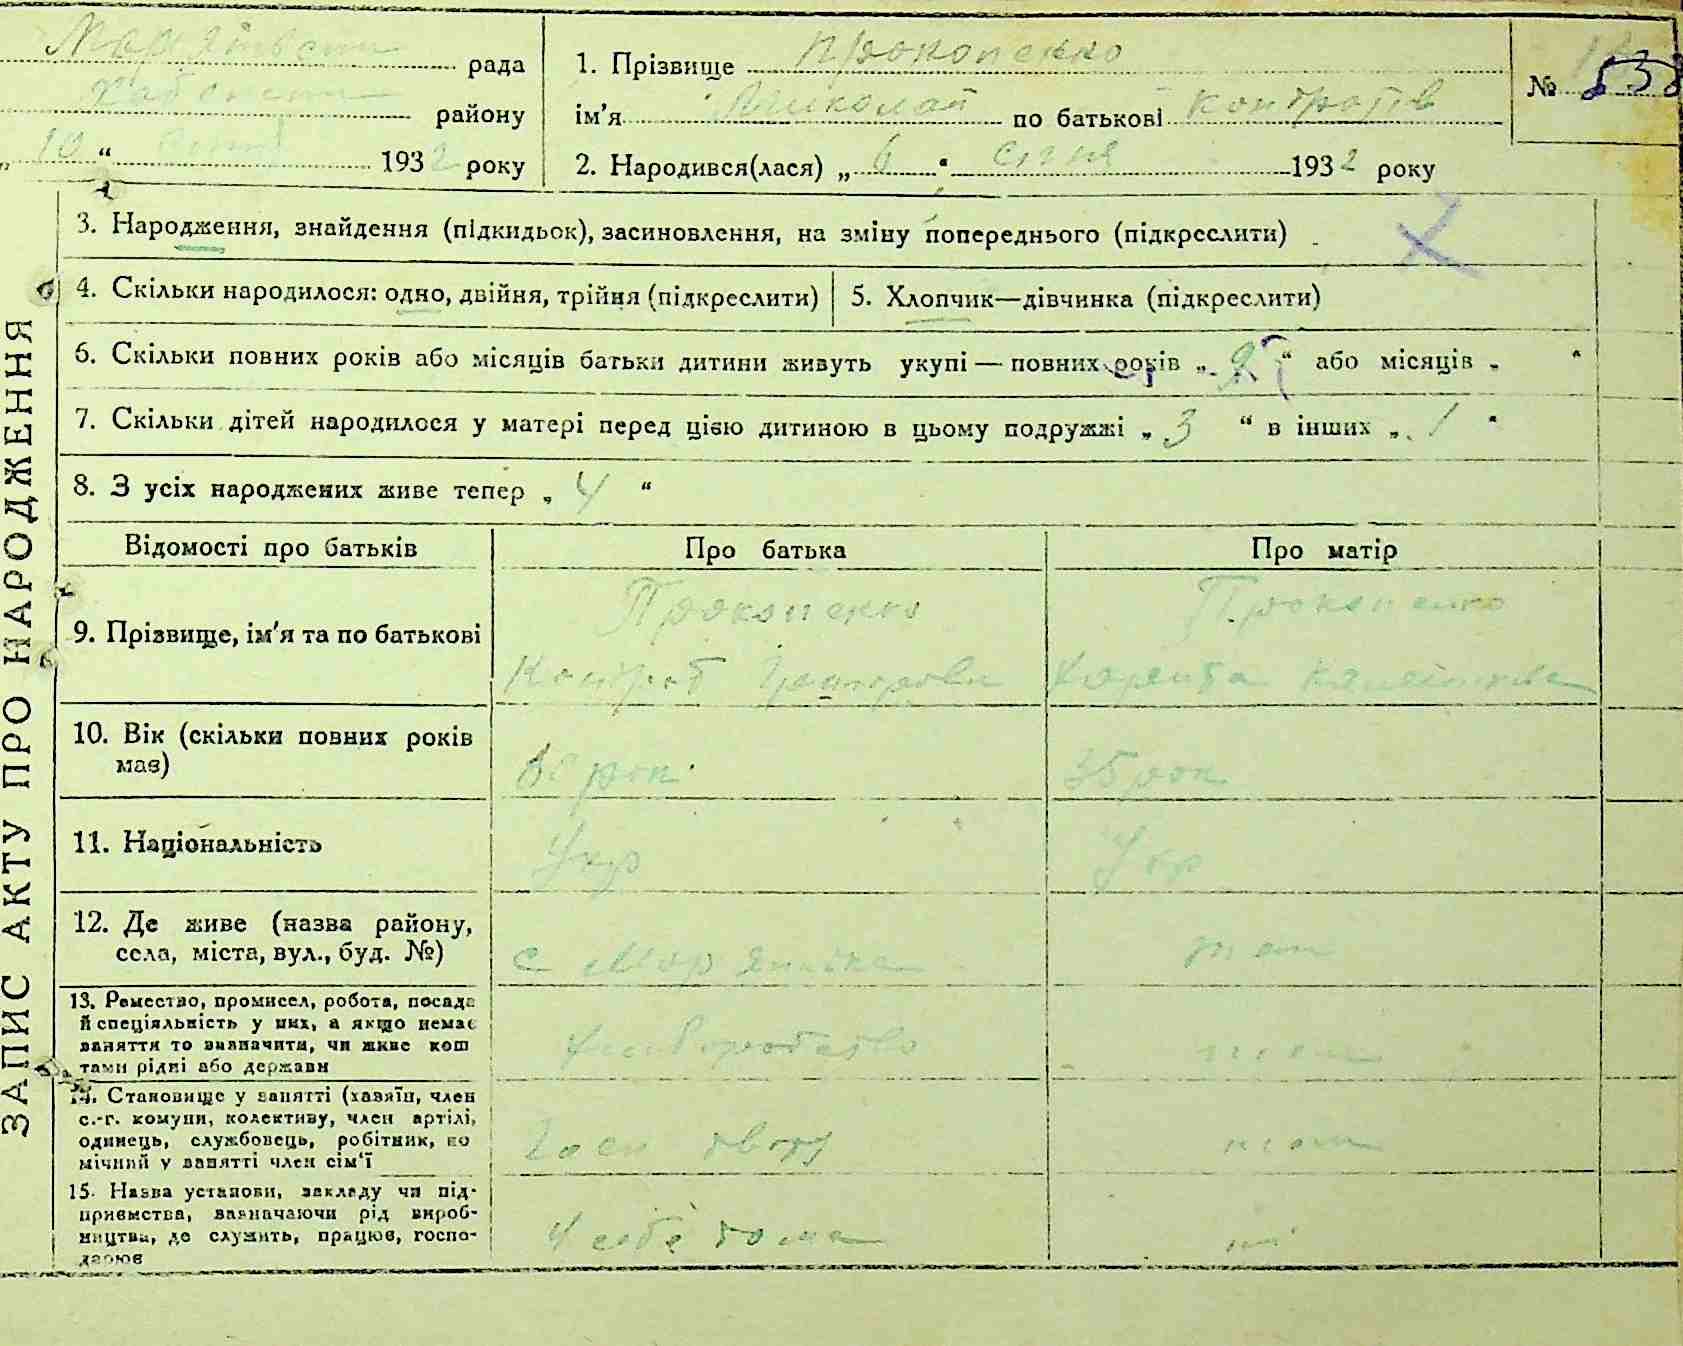 рада
району
„ 10 “ 1932 року
1. Прізвище Прокопенко
ім'я Миколай по батькові Контратів
2. Народився(лася) „ 6 “ січня 1932 року
№ 538
3. Народження, знайдення (підкидьок), засиновлення, на зміну попереднього (підкреслити)
4. Скільки народилося: одно, двійня, трійня (підкреслити)
5. Хлопчик—дівчинка (підкреслити)
6. Скільки повних років або місяців батьки дитини живуть укупі — повних років „ “ або місяців „ “
7. Скільки дітей народилося у матері перед цією дитиною в цьому подружжі „ 3 “ в інших „ 1 “
8. З усіх народжених живе тепер „ 4 “
ЗАПИС АКТУ ПРО НАРОДЖЕННЯ
Відомості про батьків
Про батька
Про матір
9. Прізвище, ім'я та по батькові
Прокопенко
Контрат
Прокопенко
10. Вік (скільки повних років
має)
рок
35 рок
11. Національність
Укр
Укр
12. Де живе (назва району,
села, міста, вул., буд. №)
с Мор
13. Ремество, промисел, робота, посада
й спеціяльність у них, а якщо немає
заняття то визначити, чи живе кош
тами рідні або держави
хліборобство
14. Становище у занятті (хазяїн, член
с.-г. комуни, колективу, член артілі,
одинець, службовець, робітник, по
мічний у занятті член сім'ї
15. Назва установи, закладу чи під-
приємства, зазначаючи рід вироб-
ництва, де служить, працює, госпо-
дарює
У себе дома